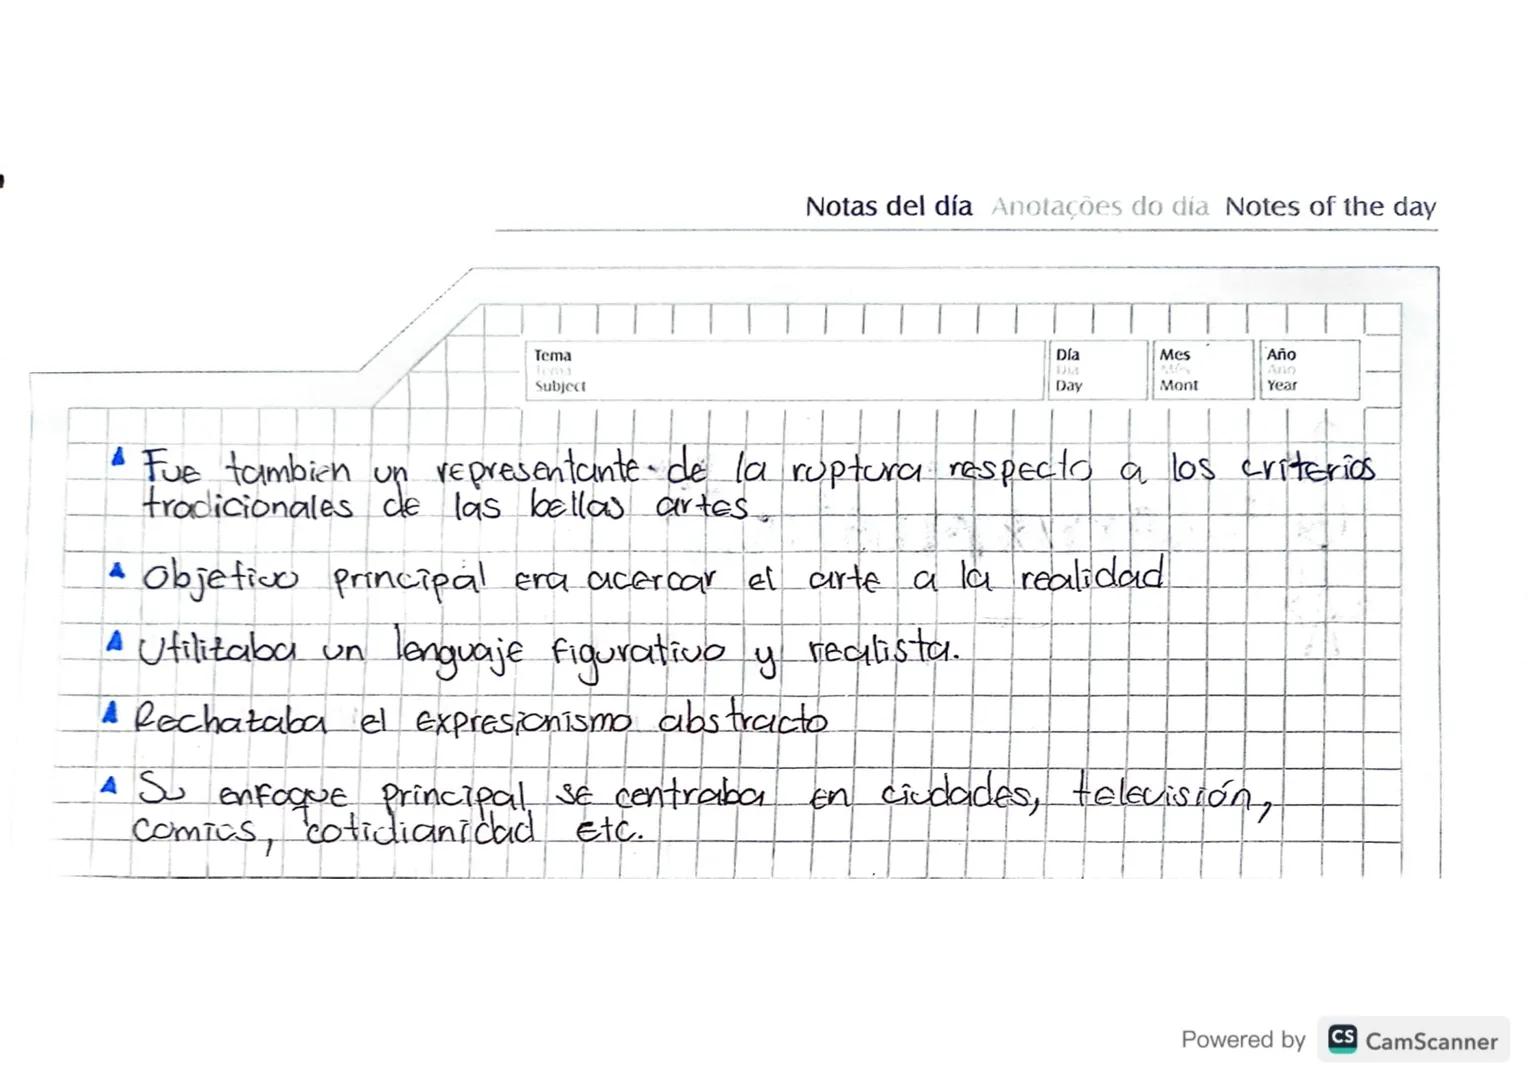 Notas del día Anotações do día Notes of the day
Tema Día Mes Año
Tema Dia Mês Ano
Subject Day Mont Year
Fue tambien un representante de la ruptura respecto a los criterios
tradicionales de las bellas artes.
Objetivo principal era acercar el arte a la realidad
Utilizaba un lenguaje figurativo y realista.
Rechazaba el expresionismo abstracto
Su enfoque principal se centraba en ciudades, televisión,
comics, cotidianidad etc.
Powered by CS CamScanner